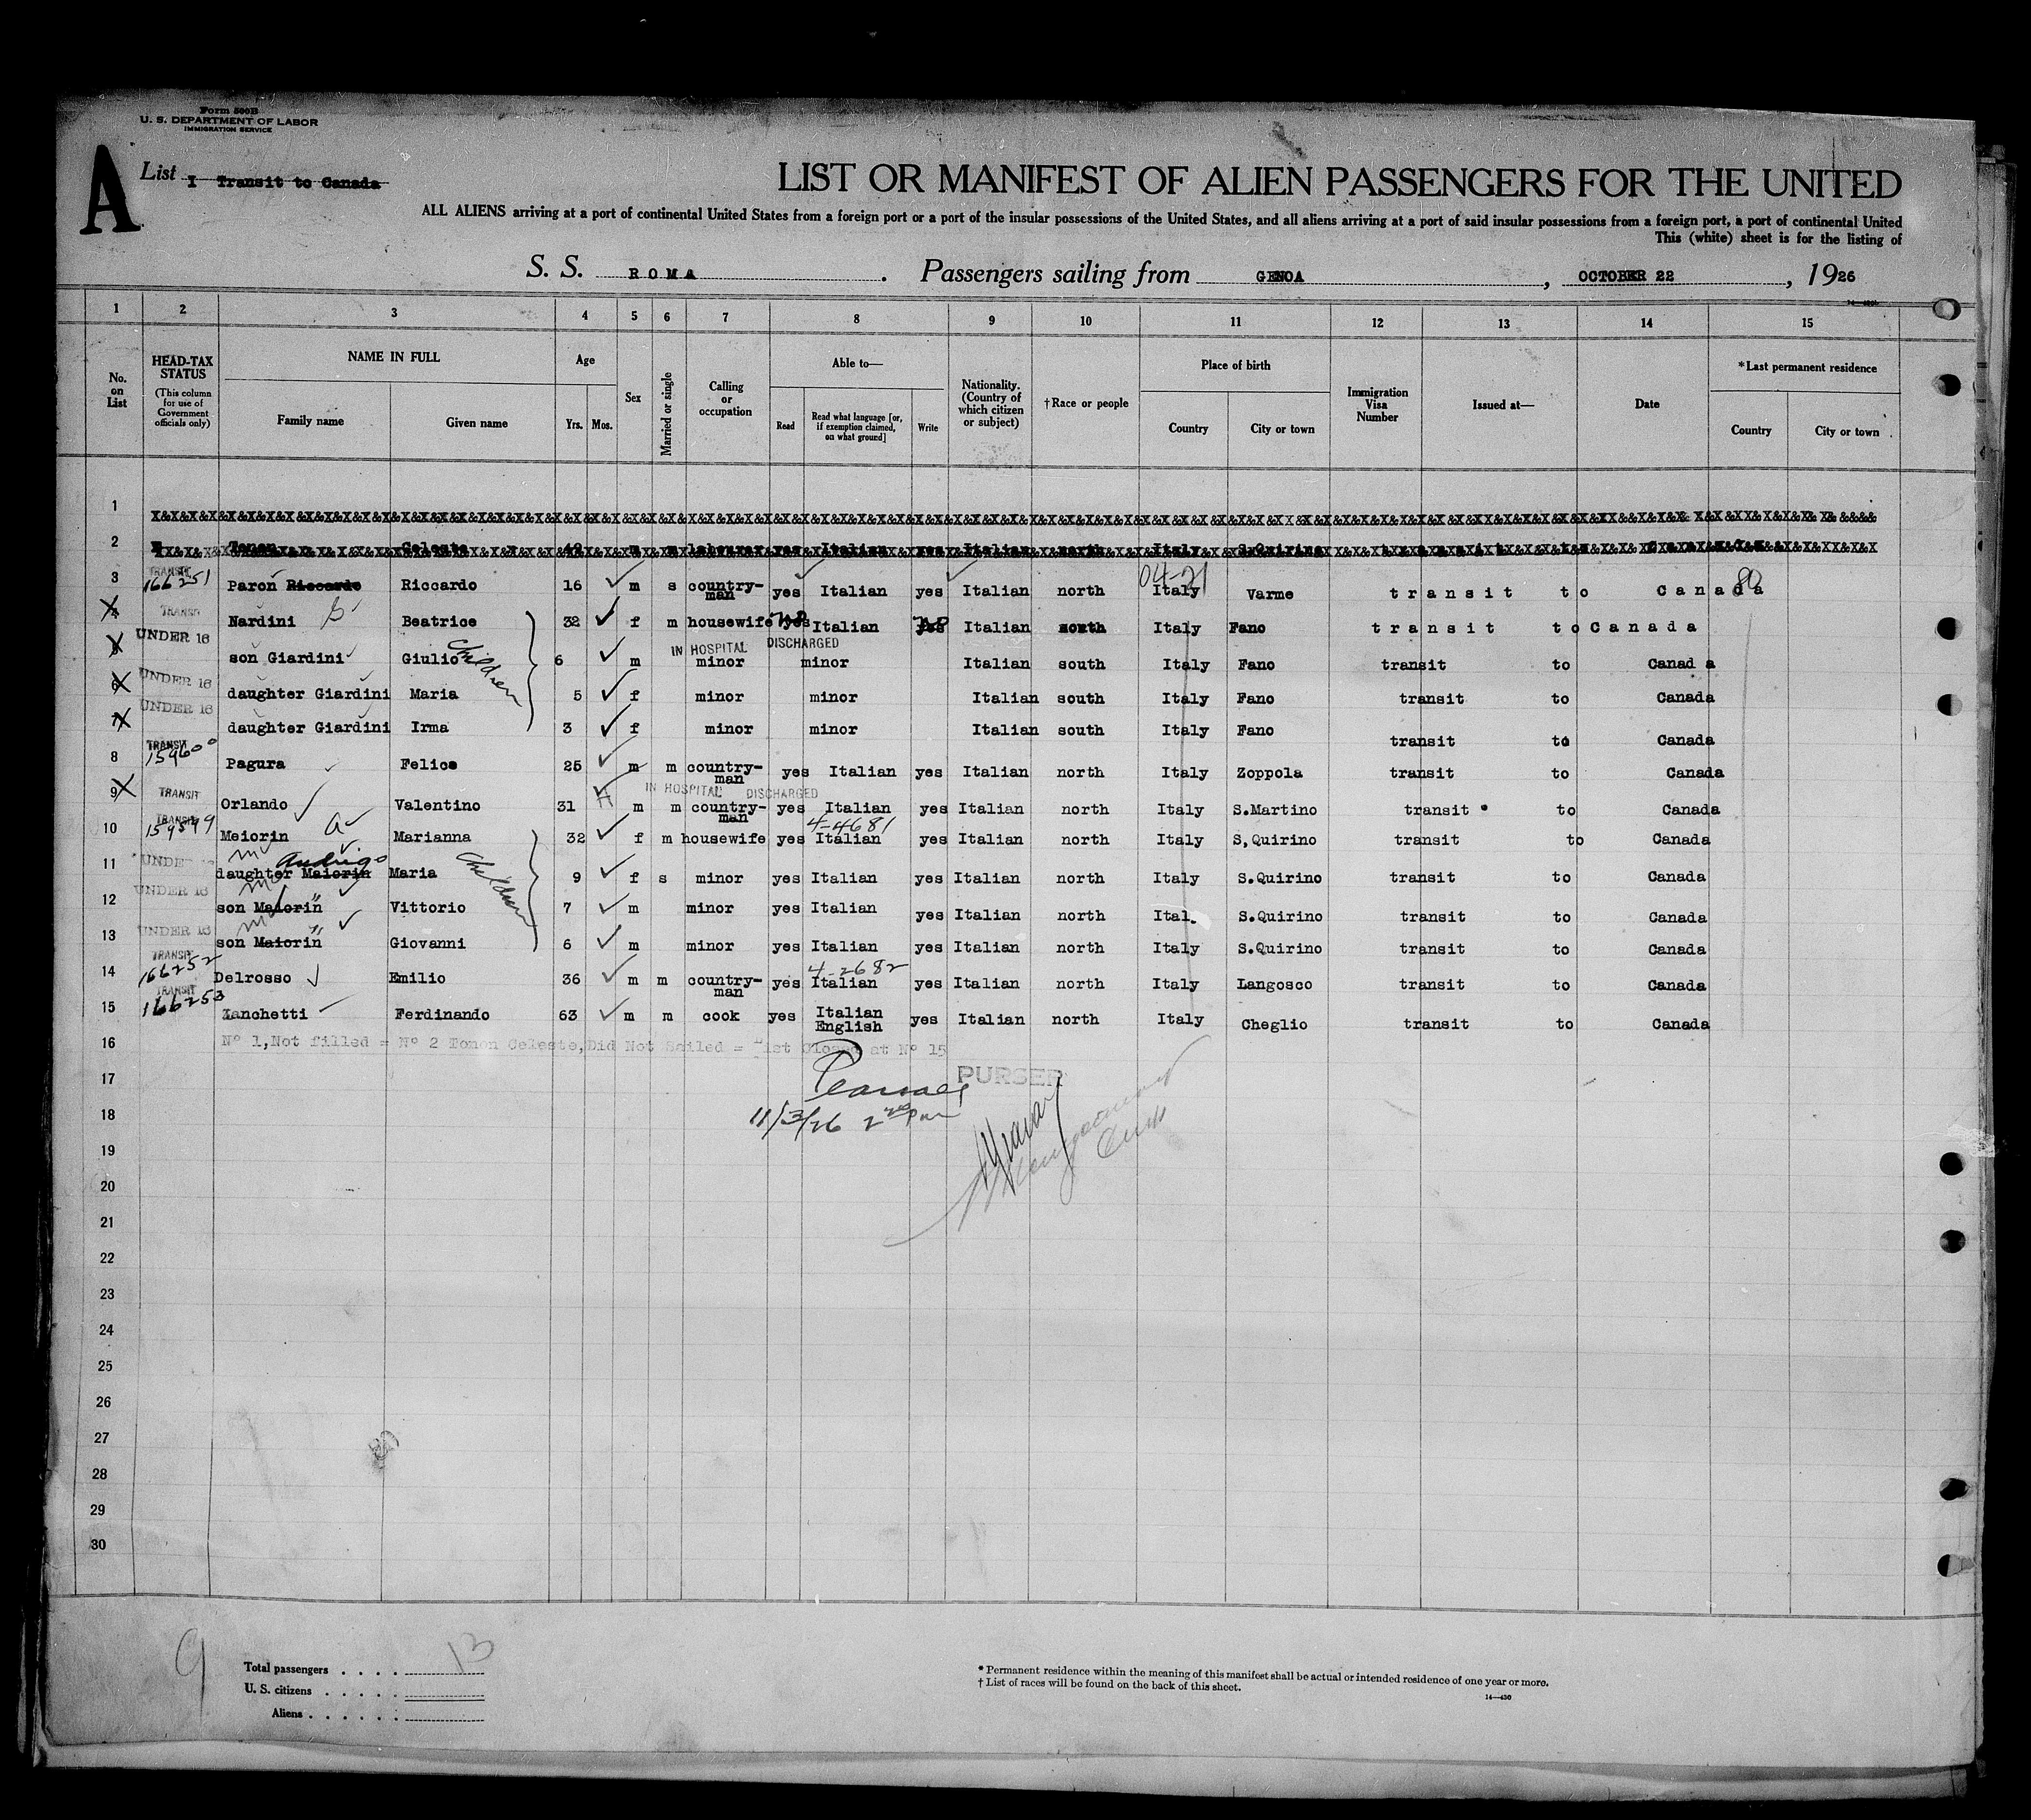 Form 500B
U. S. DEPARTMENT OF LABOR
IMMIGRATION SERVICE
A
List I Transit to Canada
LIST OR MANIFEST OF ALIEN PASSENGERS FOR THE UNITED
ALL ALIENS arriving at a port of continental United States from a foreign port or a port of the insular possessions of the United States, and all aliens arriving at a port of said insular possessions from a foreign port, a port of continental United
This (white) sheet is for the listing of
S. S. ROMA. Passengers sailing from GENOA, OCTOBER 22, 1926
1 2 3 4 5 6 7 8 9 10 11 12 13 14 15
No. on List
HEAD-TAX STATUS (This column for use of Government officials only)
NAME IN FULL
Family name
Given name
Age
Yrs. Mos.
Sex
Married or single
Calling or occupation
Able to—
Read
Read what language [or, if exemption claimed, on what ground]
Write
Nationality. (Country of which citizen or subject)
†Race or people
Place of birth
Country
City or town
Immigration Visa Number
Issued at—
Date
*Last permanent residence
Country
City or town
1
2 Tonon Celeste 42 m m labourer yes Italian yes Italian north Italy S.Quirino
3 TRANSIT 166251 Paron Riccardo Riccardo 16 m s country-man yes Italian yes Italian north 04-21 Italy Varme transit to Canada 80
4 TRANSIT Nardini G Beatrice 32 f m housewife yes no Italian yes no Italian south Italy Fano transit to Canada
5 UNDER 16 son Giardini Giulio children 6 m IN HOSPITAL DISCHARGED minor minor Italian south Italy Fano transit to Canada
6 UNDER 16 daughter Giardini Maria 5 f minor minor Italian south Italy Fano transit to Canada
7 UNDER 16 daughter Giardini Irma 3 f minor minor Italian south Italy Fano transit to Canada
8 TRANSIT 159600 Pagura Felice 25 m m country-man yes Italian yes Italian north Italy Zoppola transit to Canada
9 TRANSIT Orlando Valentino 31 H m IN HOSPITAL DISCHARGED m country-man yes Italian yes Italian north Italy S.Martino transit to Canada
10 TRANSIT 159599 Meiorin a Marianna 32 f m housewife yes 4-4681 Italian yes Italian north Italy S,Quirino transit to Canada
11 UNDER 16 daughter Maiorin Andrigo Maria children 9 f s minor yes Italian yes Italian north Italy S.Quirino transit to Canada
12 UNDER 16 son Maiorin " Vittorio 7 m minor yes Italian yes Italian north Ital. S.Quirino transit to Canada
13 UNDER 16 son Maiorin " Giovanni 6 m minor yes Italian yes Italian north Italy S.Quirino transit to Canada
14 TRANSIT 166252 Delrosso Emilio 36 m m country-man yes 4-2682 Italian yes Italian north Italy Langosco transit to Canada
15 TRANSIT 166253 Zanchetti Ferdinando 63 m m cook yes Italian English yes Italian north Italy Cheglio transit to Canada
16 Nº 1,Not filled = Nº 2 Tonon Celeste,Did Not Sailed = List Closed at Nº 15
17 PURSER
18 11/3/26 2 pm
19
20
21
22
23
24
25
26
27
28
29
30
9
Total passengers . . . . 13
U. S. citizens . . . . .
Aliens . . . . . .
* Permanent residence within the meaning of this manifest shall be actual or intended residence of one year or more.
† List of races will be found on the back of this sheet.
14—430